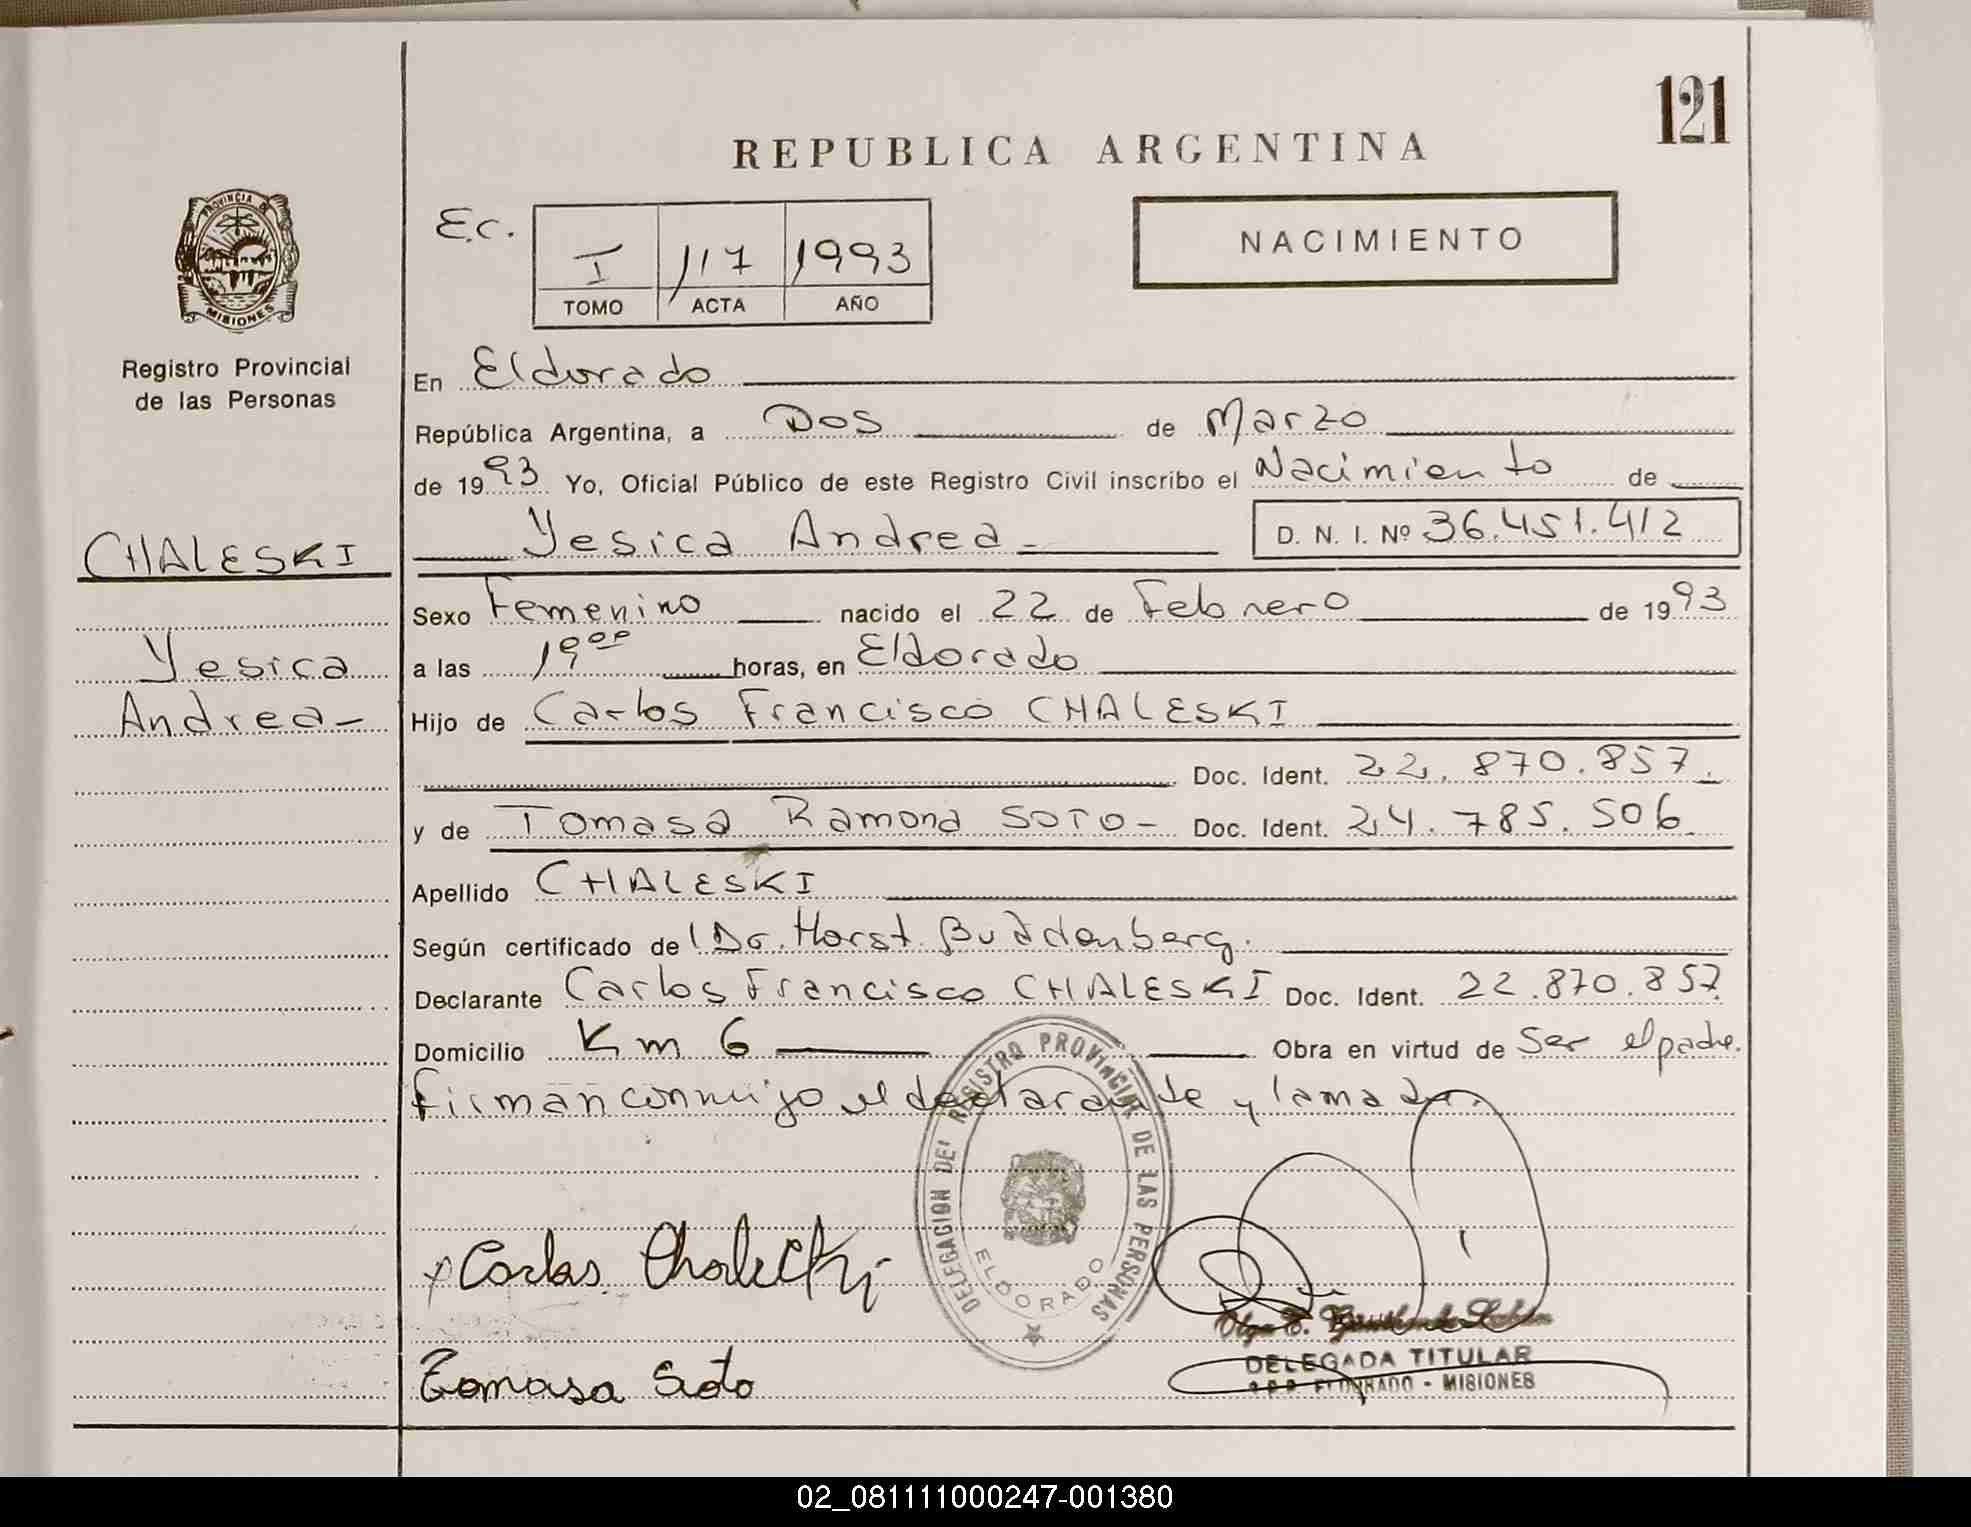 121
REPUBLICA ARGENTINA
PROVINCIA DE
MISIONES
Registro Provincial
de las Personas
E.C.
I 117 1993
TOMO ACTA AÑO
NACIMIENTO
En Eldorado
República Argentina, a Dos de Marzo
de 1993 Yo, Oficial Público de este Registro Civil inscribo el Nacimiento de
Yesica Andrea D. N. I. Nº 36.451.412
CHALESKI
Yesica
Andrea-
Sexo Femenino nacido el 22 de Febrero de 1993
a las 19 00 horas, en Eldorado
Hijo de Carlos Francisco CHALESKI
Doc. Ident. 22.870.857.
y de Tomasa Ramona SOTO- Doc. Ident. 24.785.506
Apellido CHALESKI
Según certificado de Dr. Horst Buddenberg.
Declarante Carlos Francisco CHALESKI Doc. Ident. 22.870.857
Domicilio Km 6 Obra en virtud de Ser el padre.
firman conmigo el declarante y la madre.
DELEGACION DEL REGISTRO PROVINCIAL DE LAS PERSONAS
ELDORADO
Carlos Chaleski
Tomasa Soto
Olga E.
DELEGADA TITULAR
ELDORADO - MISIONES
02_081111000247-001380